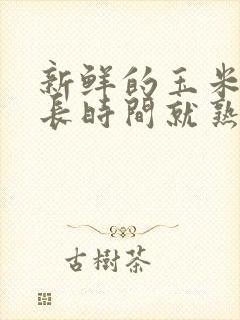 新鮮的玉米
長時間就熟
古樹茶